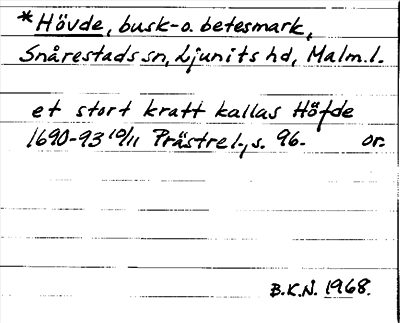 *Hövde, busk- o. betesmark,
Snårestads sn, Ljunits hd, Malm. l.
et stort kratt kallas Höfde
1690-93 10/11 Prästrel., s. 96. or.
B.K.N. 1968.